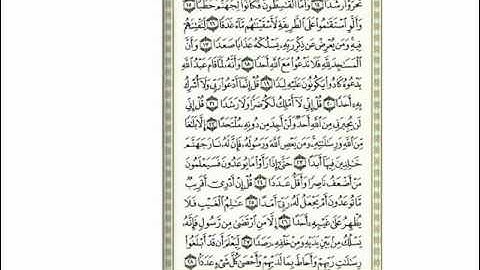 تَحَرَّوْا۟ رَشَدًا ١٤ وَأَمَّا ٱلْقَٰسِطُونَ فَكَانُوا۟ لِجَهَنَّمَ حَطَبًا ١٥
وَأَلَّوِ ٱسْتَقَٰمُوا۟ عَلَى ٱلطَّرِيقَةِ لَأَسْقَيْنَٰهُم مَّآءً غَدَقًا ١٦ لِّنَفْتِنَهُمْ
فِيهِ وَمَن يُعْرِضْ عَن ذِكْرِ رَبِّهِۦ يَسْلُكْهُ عَذَابًا صَعَدًا ١٧ وَأَنَّ
ٱلْمَسَٰجِدَ لِلَّهِ فَلَا تَدْعُوا۟ مَعَ ٱللَّهِ أَحَدًا ١٨ وَأَنَّهُۥ لَمَّا قَامَ عَبْدُ ٱللَّهِ
يَدْعُوهُ كَادُوا۟ يَكُونُونَ عَلَيْهِ لِبَدًا ١٩ قُلْ إِنَّمَآ أَدْعُوا۟ رَبِّى وَلَآ أُشْرِكُ
بِهِۦٓ أَحَدًا ٢٠ قُلْ إِنِّى لَآ أَمْلِكُ لَكُمْ ضَرًّا وَلَا رَشَدًا ٢١ قُلْ إِنِّى
لَن يُجِيرَنِى مِنَ ٱللَّهِ أَحَدٌ وَلَنْ أَجِدَ مِن دُونِهِۦ مُلْتَحَدًا ٢٢ إِلَّا بَلَٰغًا
مِّنَ ٱللَّهِ وَرِسَٰلَٰتِهِۦ وَمَن يَعْصِ ٱللَّهَ وَرَسُولَهُۥ فَإِنَّ لَهُۥ نَارَ جَهَنَّمَ
خَٰلِدِينَ فِيهَآ أَبَدًا ٢٣ حَتَّىٰٓ إِذَا رَأَوْا۟ مَا يُوعَدُونَ فَسَيَعْلَمُونَ
مَنْ أَضْعَفُ نَاصِرًا وَأَقَلُّ عَدَدًا ٢٤ قُلْ إِنْ أَدْرِىٓ أَقَرِيبٌ
مَّا تُوعَدُونَ أَمْ يَجْعَلُ لَهُۥ رَبِّىٓ أَمَدًا ٢٥ عَٰلِمُ ٱلْغَيْبِ فَلَا
يُظْهِرُ عَلَىٰ غَيْبِهِۦٓ أَحَدًا ٢٦ إِلَّا مَنِ ٱرْتَضَىٰ مِن رَّسُولٍ فَإِنَّهُۥ
يَسْلُكُ مِنۢ بَيْنِ يَدَيْهِ وَمِنْ خَلْفِهِۦ رَصَدًا ٢٧ لِّيَعْلَمَ أَن قَدْ أَبْلَغُوا۟
رِسَٰلَٰتِ رَبِّهِمْ وَأَحَاطَ بِمَا لَدَيْهِمْ وَأَحْصَىٰ كُلَّ شَىْءٍ عَدَدًۢا ٢٨